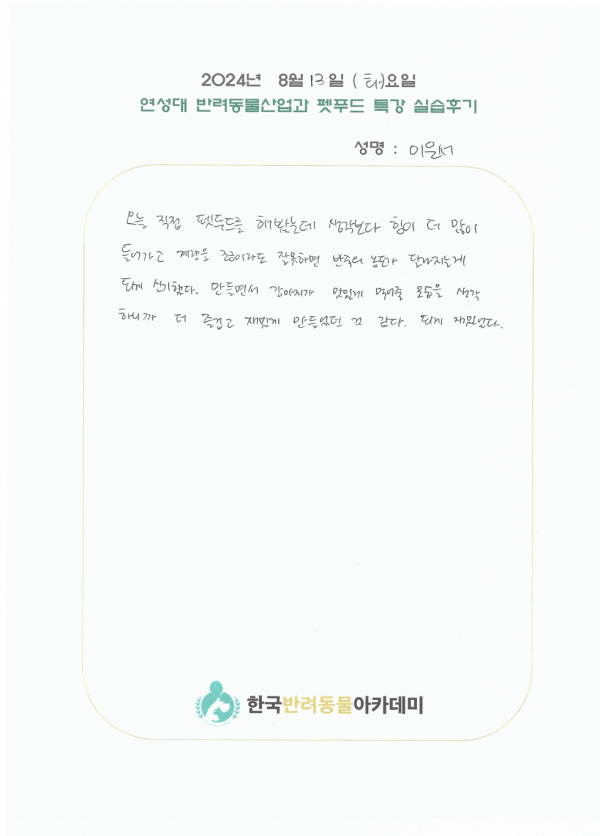 2024년 8월 13일 (화)요일
연성대 반려동물산업과 펫푸드 특강 실습후기
성명 : 이윤서
오늘 직접 펫푸드를 해봤는데 생각보다 힘이 더 많이
들어가고 계량을 조금이라도 잘못하면 반죽의 농도가 달라지는게
되게 신기했다. 만들면서 강아지가 맛있게 먹어줄 모습을 생각
하니까 더 즐겁고 재밌게 만들었던 것 같다. 되게 재밌었다.
한국반려동물아카데미